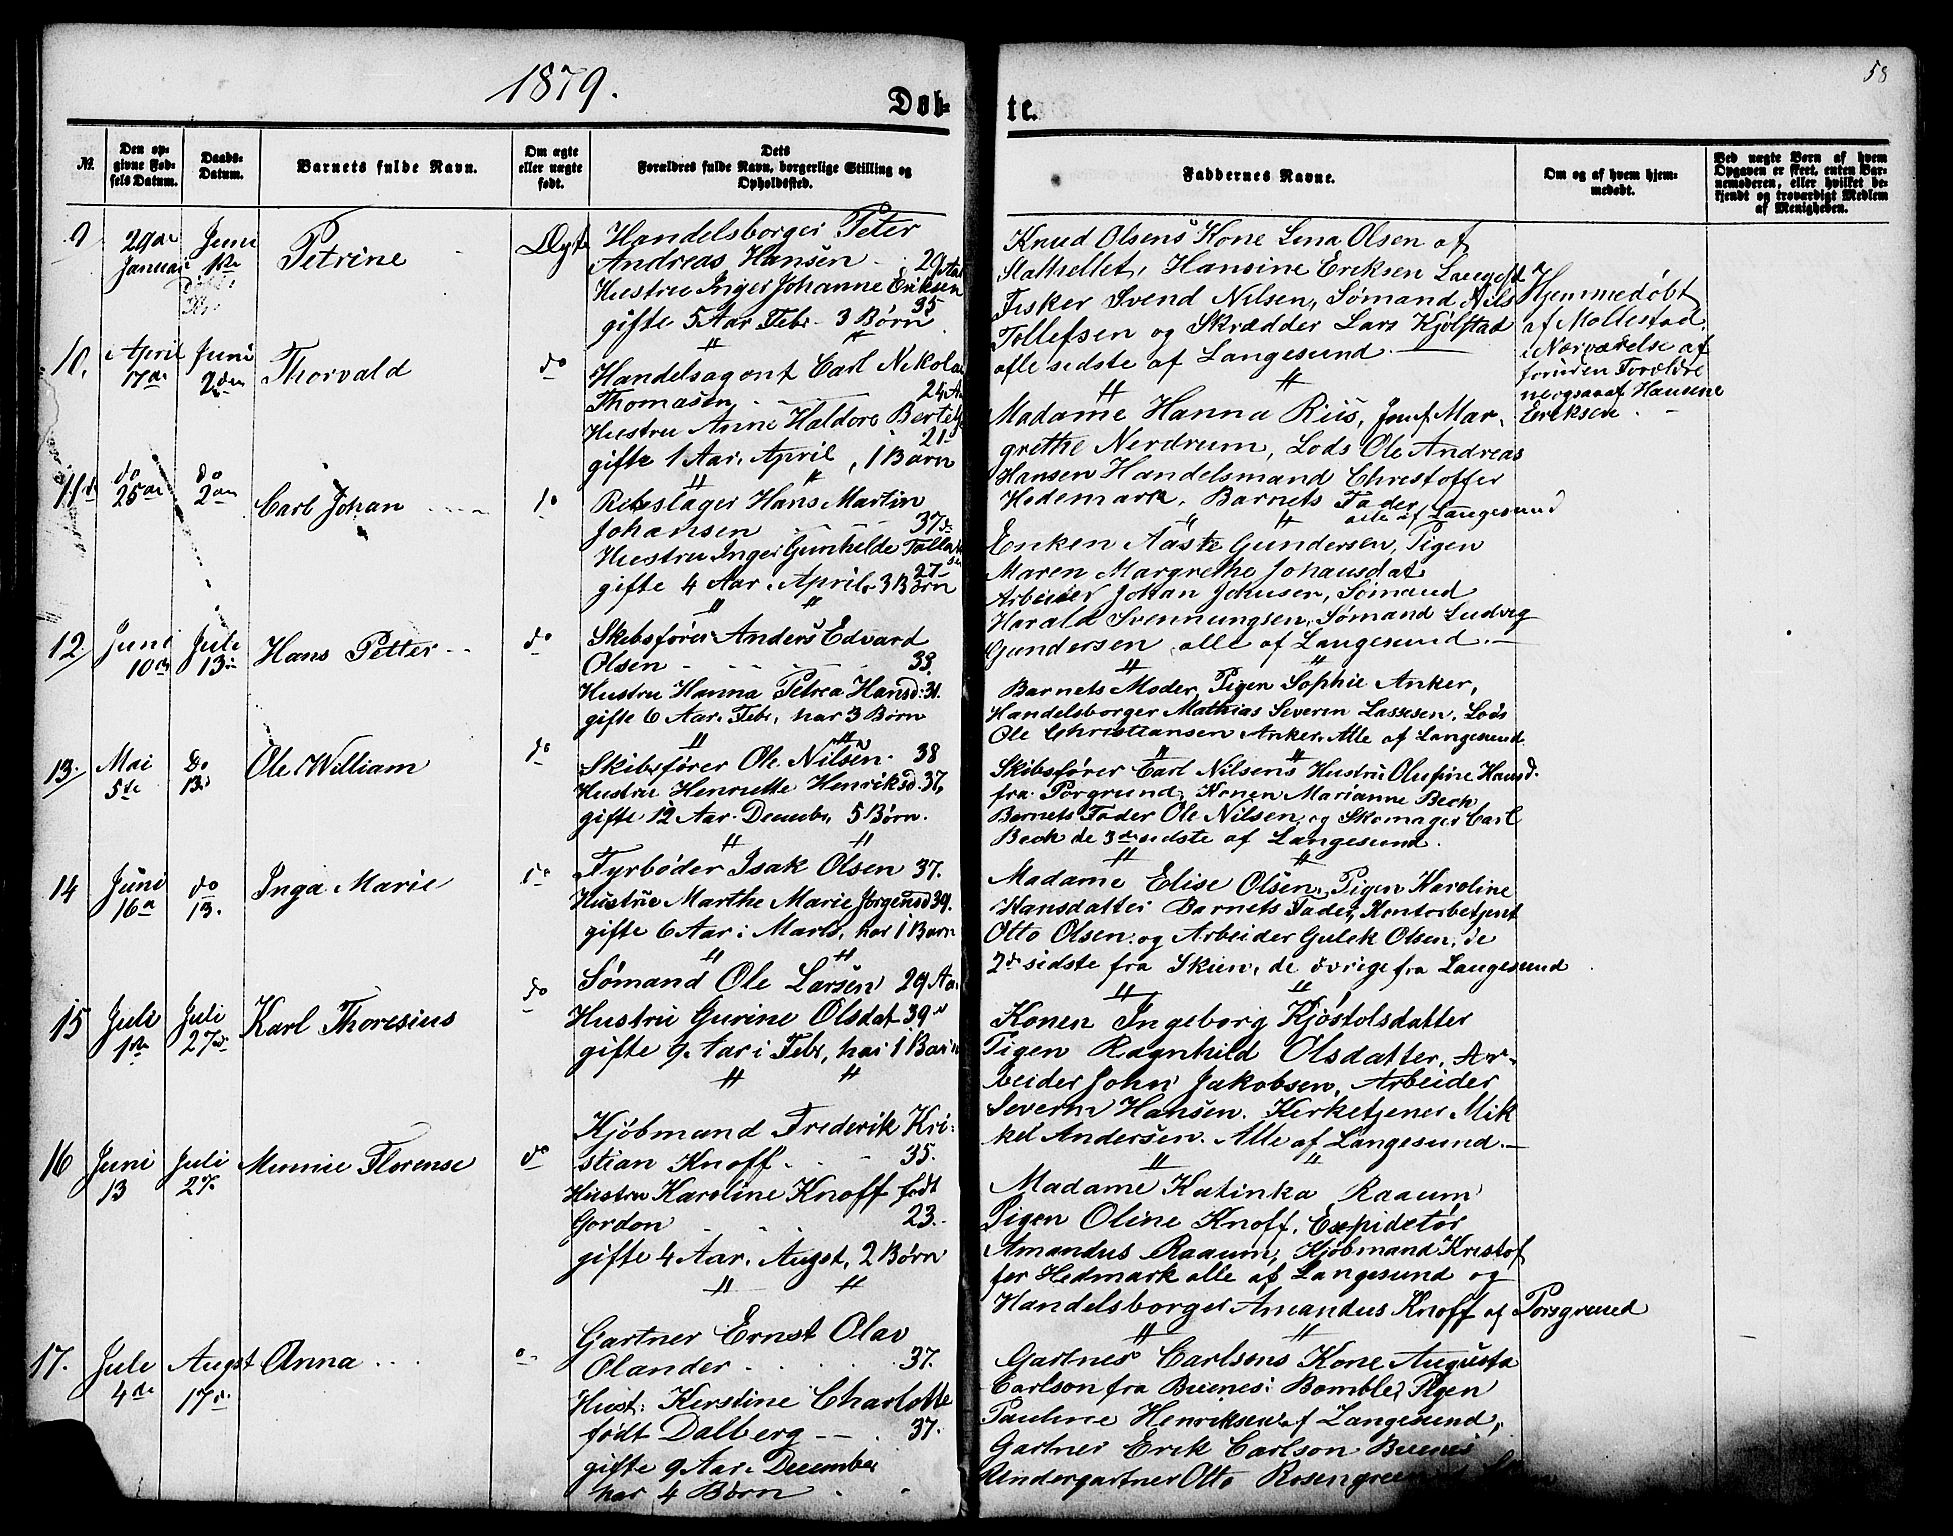 1879.
Døb-
te.
58
№
Den op-
givne Fød-
sels Datum.
Daabs-
Datum.
Barnets fulde Navn.
Om ægte
eller uægte
født.
Dets
Forældres fulde Navn, borgerlige Stilling og
Opholdssted.
Faddernes Navne.
Om og af hvem hjem-
medøbt.
Ved uægte Børn af hvem
Opgaven er skeet, enten Bar-
nemoderen, eller hvilket be-
kjendt og troværdigt Medlem
af Menigheden.
9 29de Januar
Juni 1ste
Petrine
Ægte
Handelsborger Peter
Andreas Hansen 29 Aar
Hustru Inger Johanne Eriksen
35
gifte 5 Aar Febr. 3 Børn
Knud Olsens Kone Lina Olsen af
Stathellet, Hansine Eriksen Langesd
Fisker Svend Nilsen, Sømand Nils
Tollefsen og Skrædder Lars Kjølstad
alle sidste af Langesund
Hjemmedøbt
af Mollestad
i Nærværelse af
foruden Forældre
Hansine
Eriksen
10. April 17de
Juni 2den
Thorvald
do
Handelsagent Carl Nikolai
Thomasen 24 A
Hustru Anne Haldora Bertels
21
gifte 1 Aar. April, 1 Barn
Madame Hanna Riis, Jomf. Mar-
grethe Nerdrum, Lods Ole Andreas
Hansen Handelsmand Christoffer
Hedemark, Barnets Fader
alle af Langesund
11 do 25de
do 2den
Carl Johan
do
Rebslager Hans Martin
Johansen 37
Hustru Inger Gunhilde Tollef
27
gifte 4 Aar. April. 3 Børn
Enken Aaste Gundersen, Pigen
Maren Margrethe Johansdat
Arbeider Johan Johnsen, Sømand
Harald Svennungsen, Sømand Ludvig
Gundersen alle af Langesund.
12. Juni 10de
Juli 13de
Hans Petter
do
Skibsfører Anders Edvard
Olsen 33.
Hustru Hanna Petrea Hansd: 31.
gifte 6 Aar. Febr, har 3 Børn
Barnets Moder, Pigen Sophie Anker,
Handelsborger Mathias Severin Lassesen, Lods
Ole Christiansen Anker. Alle af Langesund
13. Mai 5te
Do 13de
Ole William
do
Skibsfører Ole Nilsen. 38
Hustru Henriette Henriksd. 37,
gifte 12 Aar. Decembr, 5 Børn.
Skibsfører Carl Nilsens Hustru Olufine Hansd.
fra Porsgrund, Konen Marianne Beck
Barnets Fader Ole Nilsen, og Skomager Carl
Beck de 3de sidste af Langesund.
14 Juni 16de
do 13.
Inga Marie
do
Fyrbøder Isak Olsen 37.
Hustru Marthe Marie Jørgensd 39.
gifte 6 Aar i Marts, har 1 Barn
Madame Elise Olsen, Pigen Karoline
Hansdatter Barnets Fader, Kontorbetjent
Otto Olsen og Arbeider Gulek Olsen, de
2de sidste fra Skien, de øvrige fra Langesund
15 Juli 1ste
Juli 27de
Karl Thoresius
do
Sømand Ole Larsen 29 Aar
Hustru Gurine Olsdat 39
gifte 9 Aar i Febr, har 1 Barn
Konen Ingeborg Kjøstolsdatter
Pigen Ragnhild Olsdatter, Ar-
beider John Jakobsen, Arbeider
Severin Hansen. Kirketjener Mik
kel Andersen. Alle af Langesund.
16 Juni 13
Juli 27.
Minnie Florense
do
Kjøbmand Frederik Kri-
stian Knoff 35.
Hustru Karoline Knoff født
Gordon 23.
gifte 4 Aar. Augst, 2 Børn
Madame Katinka Raaum
Pigen Oline Knoff, Expiditør
Amandus Raaum, Kjøbmand Kristof
fer Hedmark alle af Langesund og
Handelsborger Amandus Knoff af Porsgrund
17. Juli 4de
Augst 17de
Anna
Gartner Ernst Olav
Olander 37.
Hust: Kerstine Charlotte
født Dalberg 37.
gifte 9 Aar. December
har 4 Børn
Gartner Carlsons Kone Augusta
Carlson fra Buenes i Bamble, Pigen
Pauline Henriksen af Langesund,
Gartner Erik Carlson Buenes
Undergartner Otto Rosengreen